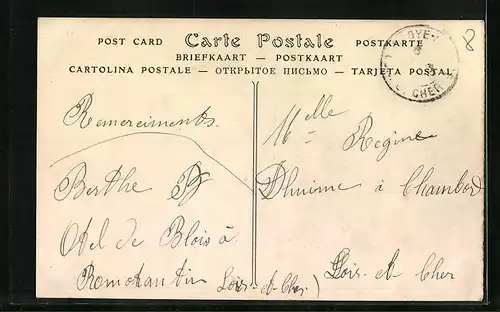 POST CARD Carte Postale POSTKARTE
BRIEFKAART — POSTKAART
CARTOLINA POSTALE — ОТКРЫТОЕ ПИСЬМО — TARJETA POSTAL
8
CHER
Remerciments.
Berthe
Otel de Blois à
Romorantin Loir-et-Cher)
Melle
Regine
Dhuime à Chambord
Loir-et-Cher